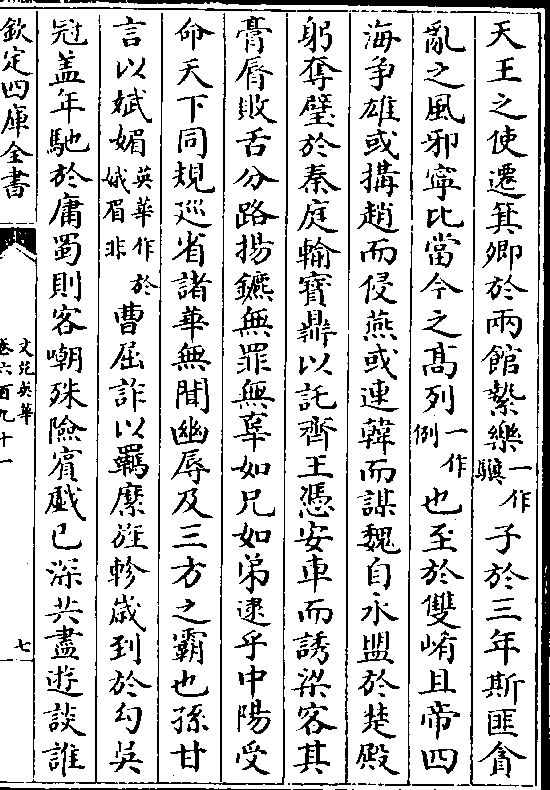 天王之使遷箕卿於兩館縶樂一作驥子於三年斯匪貪
亂之風邪寜比當今之髙列一作例也至於雙崤且帝四
海爭雄或搆趙而侵燕或連韓而謀魏自求盟於楚殿
躬奪璧於秦庭輸寶鼎以託齊王憑安車而誘梁客其
膏脣敗舌分路揚鑣無罪無辜如兄如弟逮乎中陽受
命天下同規廵省諸華無聞幽辱及三方之霸也孫甘
言以娬媚英華作娥眉非於曹屈詐以羈縻旌軫歲到於勾吳
冠盖年馳於庸蜀則客嘲殊險賓戲已深共盡遊談誰
欽定四庫全書
文苑英華
卷六百九十一
七